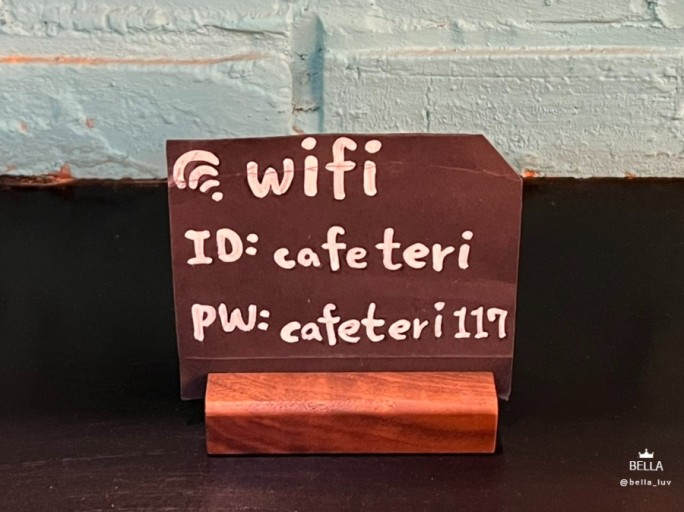 wifi
ID: cafeteri
PW: cafeteri117
BELLA
@bella_luv